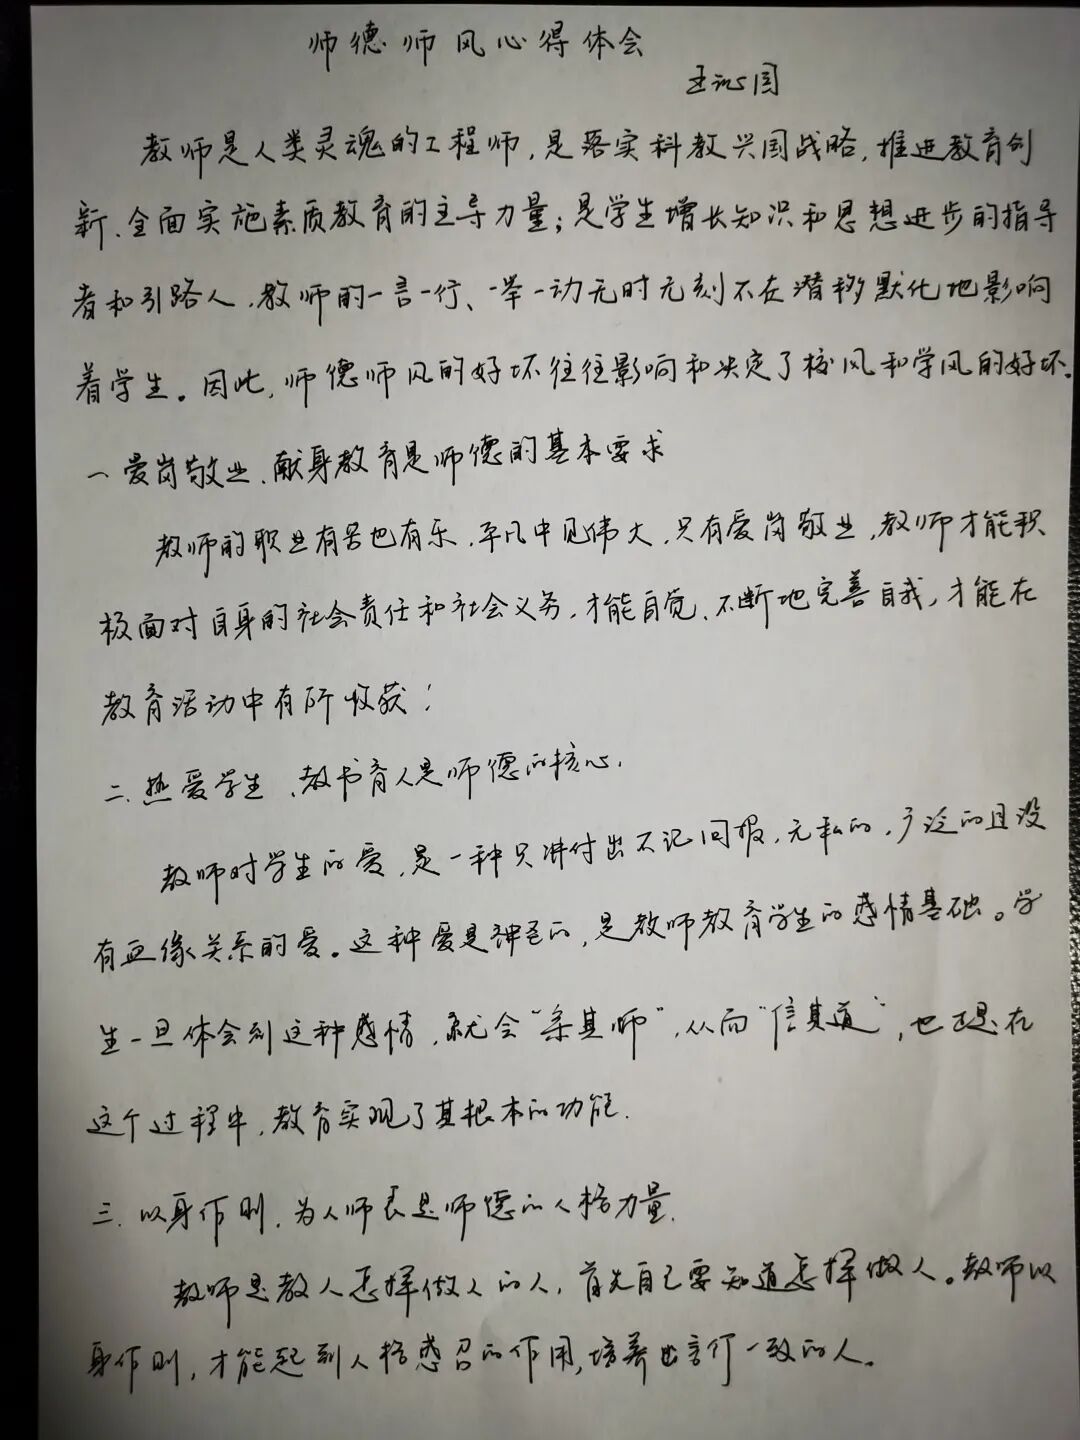 师德师风心得体会
王沁园
教师是人类灵魂的工程师,是落实科教兴国战略,推进教育创
新、全面实施素质教育的主导力量;是学生增长知识和思想进步的指导
者和引路人,教师的一言一行、一举一动无时无刻不在潜移默化地影响
着学生。因此,师德师风的好坏往往影响和决定了校风和学风的好坏.
一 爱岗敬业、献身教育是师德的基本要求
教师的职业有苦也有乐,平凡中见伟大,只有爱岗敬业,教师才能积
极面对自身的社会责任和社会义务,才能自觉、不断地完善自我,才能在
教育活动中有所收获!
二.热爱学生、教书育人是师德的核心.
教师对学生的爱,是一种只讲付出不记回报,无私的,广泛的且没
有血缘关系的爱。这种爱是神圣的,是教师教育学生的感情基础。学
生一旦体会到这种感情,就会“亲其师”,从而“信其道”,也正是在
这个过程中,教育实现了其根本的功能.
三.以身作则,为人师表是师德的人格力量.
教师是教人怎样做人的人,首先自己要知道怎样做人。教师以
身作则,才能起到人格感召的作用,培养出言行一致的人。